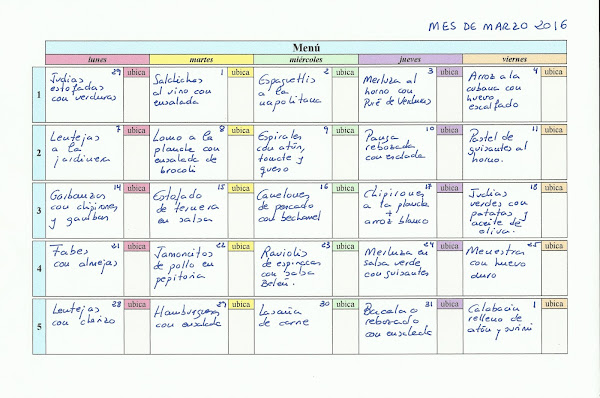 MES DE MARZO 2016
Menú
lunes martes miércoles jueves viernes
1
Judías 29 ubica
estofadas
con verduras
Salchichas 1 ubica
al vino con
ensalada
Espaguettis 2 ubica
a la
napolitana
Merluza al 3 ubica
horno con
Puré de Verduras
Arroz a la 4 ubica
cubana con
huevo
escalfado
2
Lentejas 7 ubica
a la
jardinera
Lomo a la 8 ubica
plancha con
ensalada de
brocoli
Espirales 9 ubica
con atún,
tomate y
queso
Panga 10 ubica
rebozada
con ensalada
Pastel de 11 ubica
guisantes al
horno.
3
Garbanzos 14 ubica
con chipirones
y gambas
Estofado 15 ubica
de ternera
en salsa
Canelones 16 ubica
de pescado
con bechamel
Chipirones 17 ubica
a la plancha
+
arroz blanco
Judías 18 ubica
verdes con
patatas y
aceite de
oliva.
4
Fabes 21 ubica
con almejas
Jamoncitos 22 ubica
de pollo en
pepitoria
Raviolis 23 ubica
de espinacas
con salsa
Merluza en 24 ubica
salsa verde
con guisantes
Menestra 25 ubica
con huevo
duro
5
Lentejas 28 ubica
con chorizo
Hamburguesa 29 ubica
con ensalada
Lasaña 30 ubica
de carne
Bacalao 31 ubica
rebozado
con ensalada
Calabacín 1 ubica
relleno de
atún y surimi